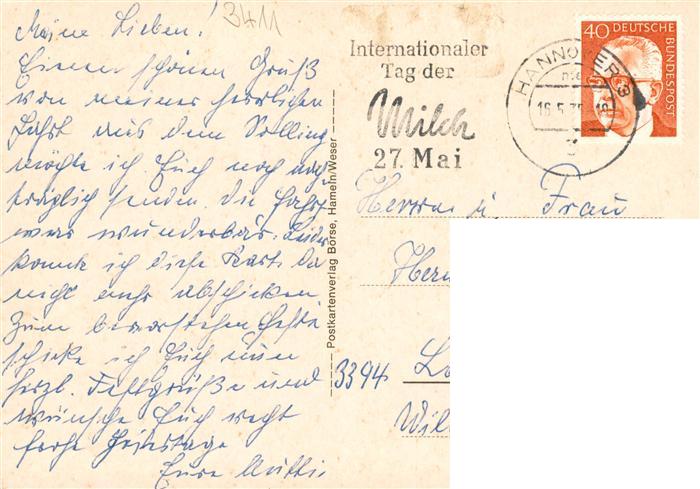 3411
Meine Lieben!
Einen schönen Gruß
von meiner herrlichen
Fahrt aus dem Solling
möchte ich Euch noch nach-
träglich senden. Die Fahrt
war wunderbar. Leider
konnte ich diese Karte da
nicht mehr abschicken.
Zum bevorstehen Feste
schicke ich Euch nun
herzl. Festgrüße und
wünsche Euch recht
frohe Feiertage
Eure Mutti.
Postkartenverlag Börse, Hameln/Weser
Internationaler
Tag der
Milch
27. Mai
HANNOVER 3
16.5.
40 DEUTSCHE
BUNDESPOST
Herrn u. Frau
Her
3394
Wil